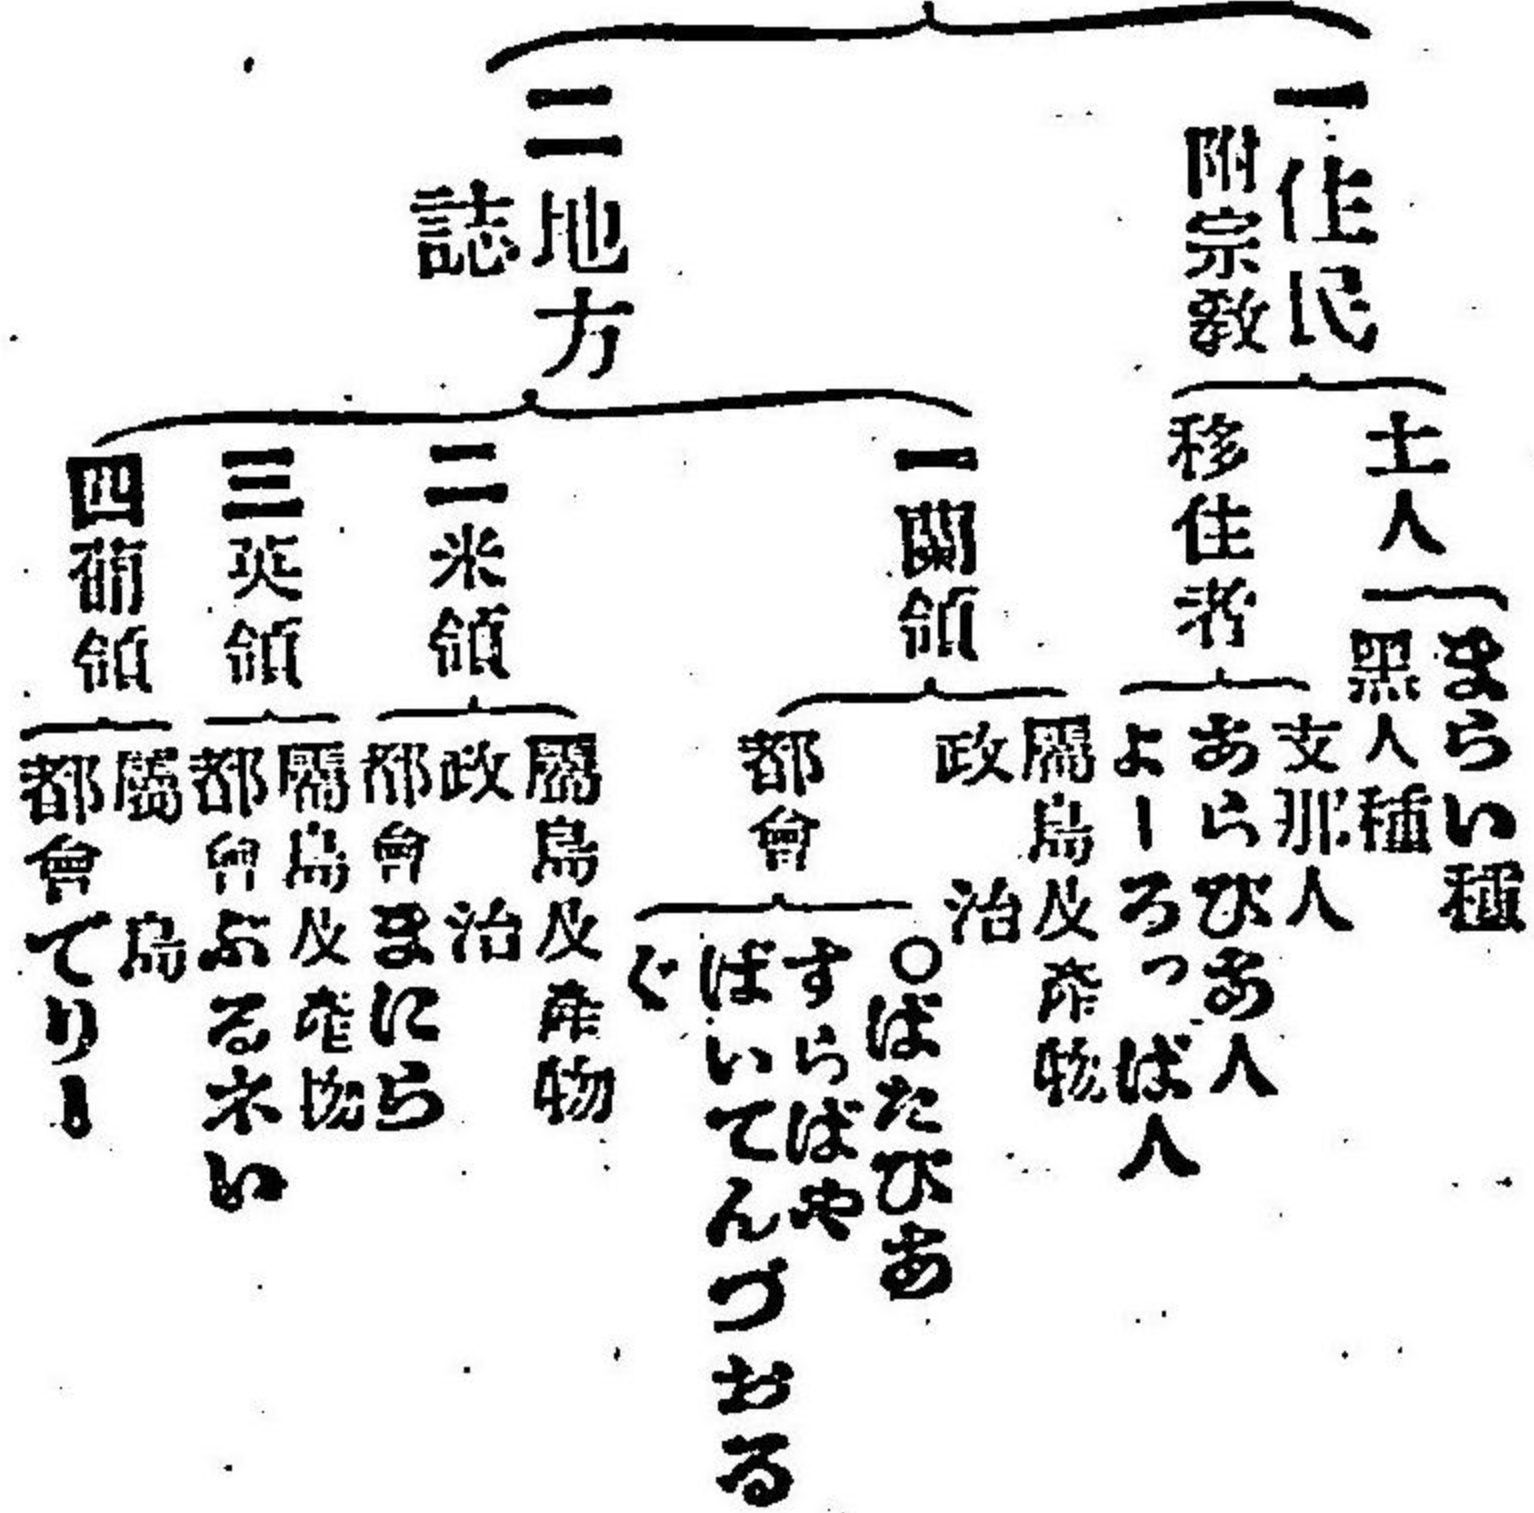 一住民
附宗敎
土人
まらい種
黑人種
移住者
支那人
あらびあ人
よーろっぱ人
二地方
誌
一蘭領
屬島及產物
政治
都會
○ばたびあ
すらばや
ばいてんづおる
ぐ
二米領
屬島及產物
政治
都會まにら
三英領
屬島及產物
都會ぶるネい
四葡領
屬島
都會てりー